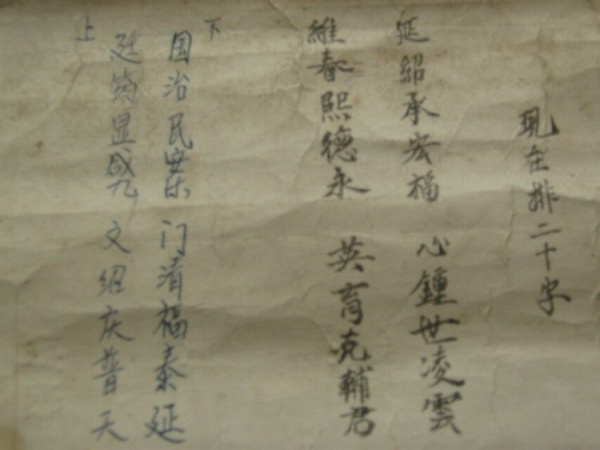 現在排二十字
延紹承宏福 心鍾世凌雲
維春熙德永 英育克輔君
下
国治民 门清福泰延
上
显 文绍庆普天